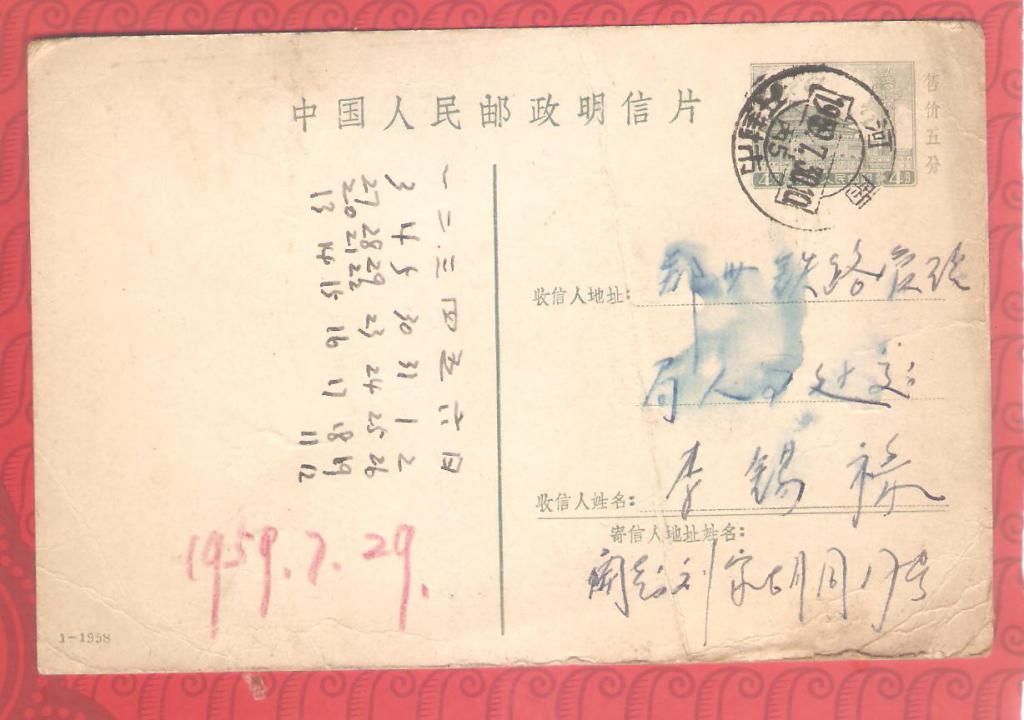 中国人民邮政明信片
售价五分
河南
1959.7.30.10
收信人地址：郑州铁路管理
局人事处交：
收信人姓名：李锡禄
寄信人地址姓名：
開封刘家胡同17号
一 二 三 四 五 六 日
3 4 5 30 31 1 2
27 28 29 23 24 25 26
20 21 22 16 17 18 19
13 14 15 11 12
1959.7.29.
1-1958